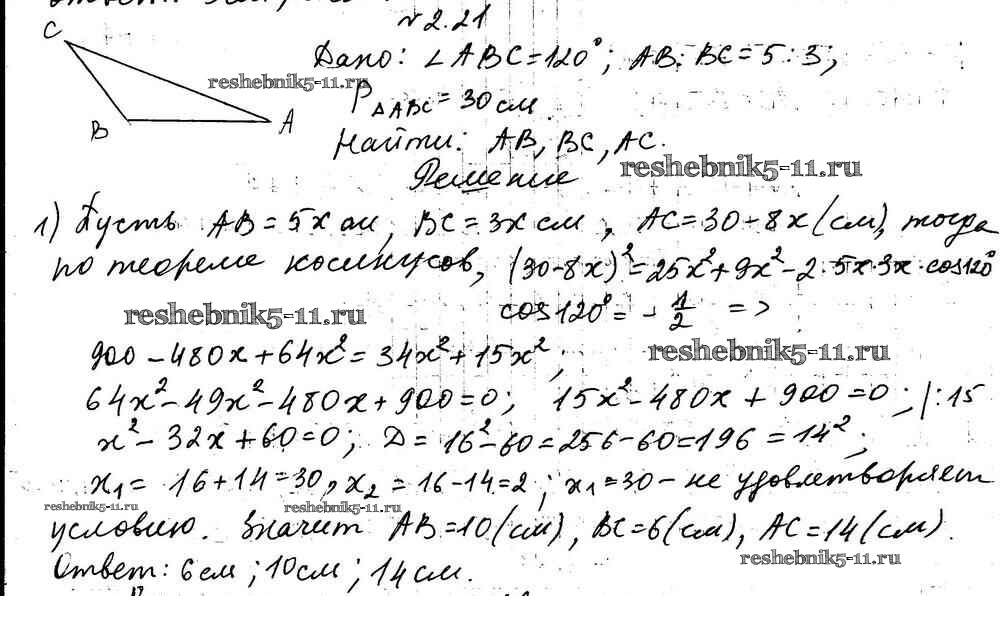 № 2.21
C
Дано: ∠ABC=120°; AB:BC=5:3;
reshebnik5-11.ru
P△ABC=30см.
B A
Найти: AB, BC, AC.
reshebnik5-11.ru
Решение
1) Пусть AB=5x см, BC=3x см, AC=30-8x(см), тогда
по теореме косинусов, (30-8x)²=25x²+9x²-2·5x·3x·cos120°
reshebnik5-11.ru
cos120°=-1/2 =>
900-480x+64x²=34x²+15x²;
reshebnik5-11.ru
64x²-49x²-480x+900=0; 15x²-480x+900=0; |:15
x²-32x+60=0; D=16²-60=256-60=196=14²;
x₁=16+14=30, x₂=16-14=2; x₁=30-не удовлетворяет
reshebnik5-11.ru reshebnik5-11.ru
условию. Значит AB=10(см), BC=6(см), AC=14(см).
reshebnik5-11.ru
Ответ: 6см; 10см; 14см.